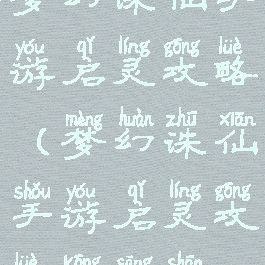 梦幻诛仙手
yóu qǐ líng gōng lüè
游启灵攻略
mèng huàn zhū xiān
（梦幻诛仙
shǒu yóu qǐ líng gōng
手游启灵攻
lüè kōng sāng shān